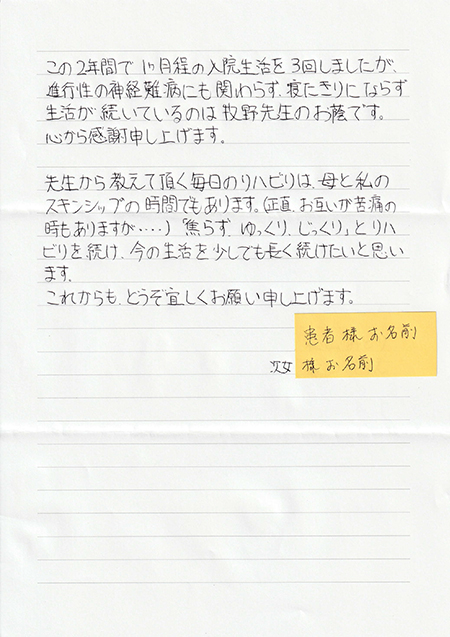 この2年間で1ヶ月程の入院生活を3回しましたが、
進行性の神経難病にも関わらず、寝たきりにならず
生活が続いているのは牧野先生のお蔭です。
心から感謝申し上げます。
先生から教えて頂く毎日のリハビリは、母と私の
スキンシップの時間でもあります。(正直、お互いが苦痛の
時もありますが‥‥)「焦らず ゆっくり、じっくり」とリハ
ビリを続け、今の生活を少しでも長く続けたいと思い
ます。
これからも、どうぞ宜しくお願い申し上げます。
患者様お名前
次女 様お名前